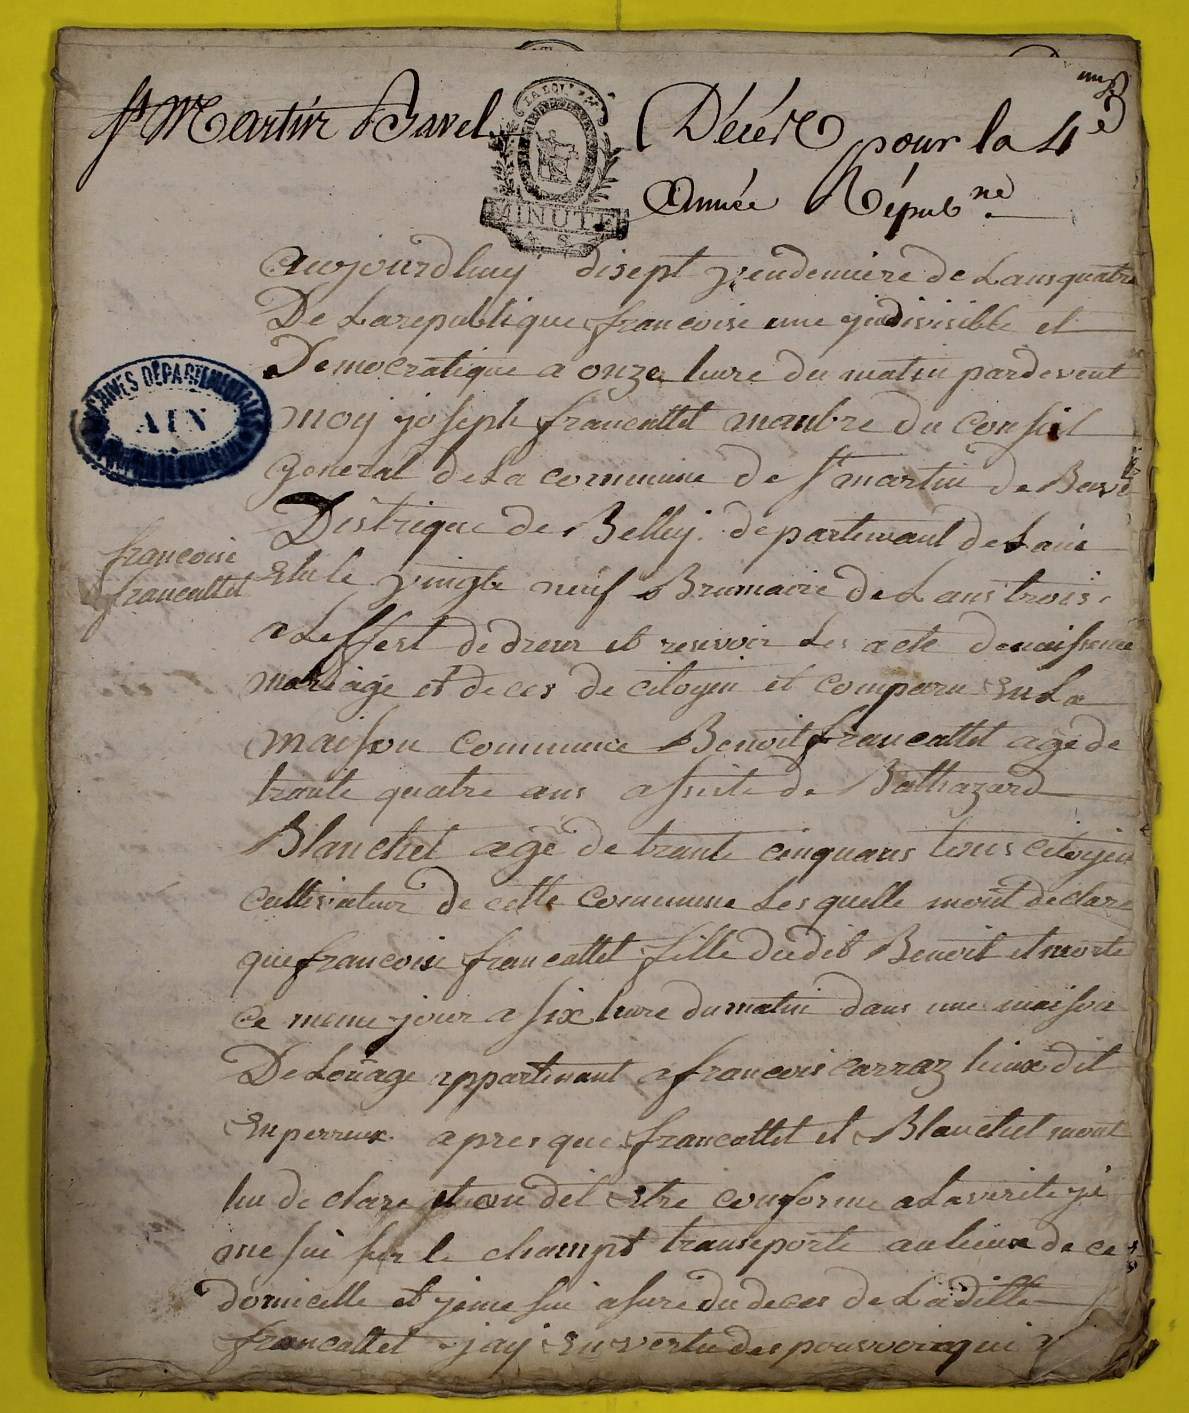 St Martin Bavel
Décés pour la 4e
Année Répub.ne
LA LOI
MINUTE
A. 5.
aujourdhuy disept vendemiere de Lans quatre
De Larepublique francoise une yndivisible et
Democratique a onze heure du matin pardevent
moy joseph francattet manbre du conseil
general de La commune de st martin de Bavel
Distrique de Belley departemant de Lain
ARCHIVES DÉPARTEMENTALES
AIN
francoise
francattet
Elu le vingte neuf Brumaire de Lans trois
a Leffest de dreser et resevoir Les acte de naissance
mariage et deces de citoyen et comparu en La
maison commune Benoit francattet age de
trante quatre ans assiste de Balthazard
Blanchet agé de trante cinq ans tous citoyen
cultivateur de cette commune Les quelle mont declare
que francoise francattet fille dudit Benoit et morte
ce meme jour a six heure du matin dans une maison
De Louage appartenant a francois carraz lieux dit
En perreux apres que francattet et Blanchet mont
lu de clare et on dit Etre conforme a La verite je
me sui sur le champt transporte au lieux de ce
domicelle et je me sui asure du deces de Laditte
francattet jay En vertu des pouvoir qui